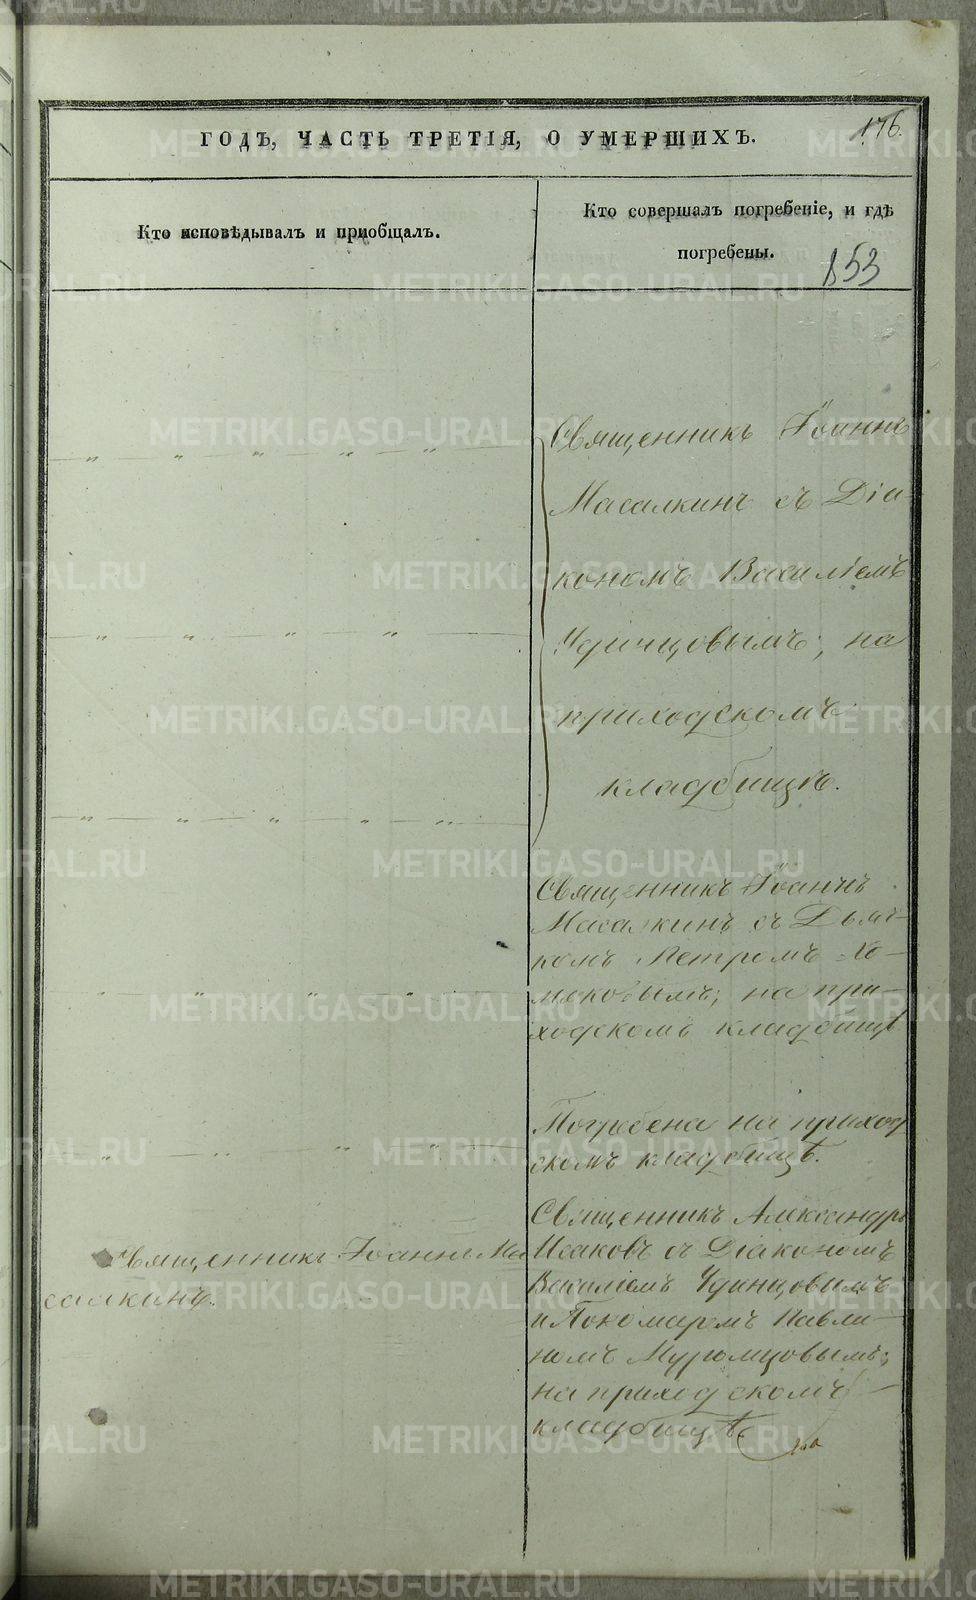 176.
ГОДЪ, ЧАСТЬ ТРЕТІЯ, О УМЕРШИХЪ.
Кто исповѣдывалъ и пріобщалъ.
Кто совершалъ погребеніе, и гдѣ
погребены.
853
Священникъ Іоаннъ
Масалкинъ съ Діа
кономъ Василіемъ
Удинцовымъ; на
приходскомъ
кладбищѣ.
Священникъ Іоаннъ
Масалкинъ съ Дьяч-
комъ Петромъ Хо-
мяковымъ; на при-
ходскомъ кладбищѣ
Погребена на приход
скомъ кладбищѣ.
Священникъ Іоаннъ Ма
салкинъ.
Священникъ Александръ
Исаковъ съ Діакономъ
Василіемъ Удинцовымъ
и Пономаремъ Павли-
номъ Муромцовымъ;
на приходскомъ
кладбищѣ.
METRIKI.GASO-URAL.RU